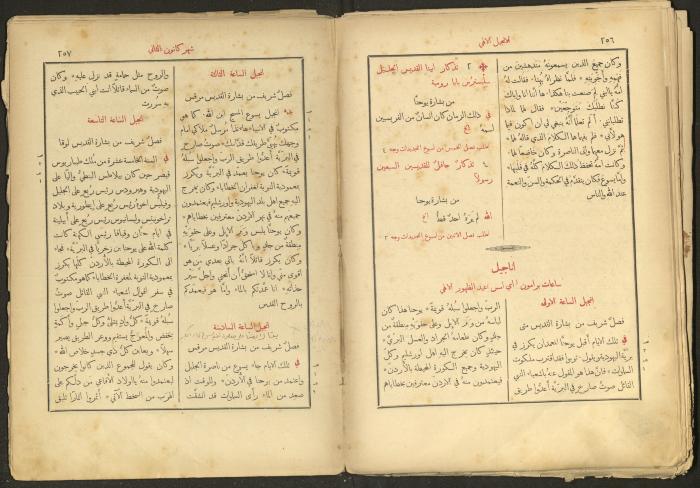 ٢٥٦
الانجيل الالهي
وكان جميع الذين يسمعونه مندهشين من
فهمه واجوبته * فلما نظراه بُهتا * فقالت له
امه يا بُني لمَ صنعت بنا هكذا ها أنا وأباك
كنا نطلبك متوجّعين * فقال لهما لماذا
تطلبانني . ألم تعلما أنه ينبغي لي ان أكون فيما
هو لأبي * فلم يفهما هذا الكلام الذي قاله لهما *
ثم نزل معهما وأتى الناصرة وكان خاضعًا لهما *
وكانت امه تحفظ ذلك الكلام كله في قلبها *
وأما يسوع فكان يتقدم في الحكمة والسن والنعمة
عند الله والناس
٢ تذكار ابينا القديس
سلبسترس بابا رومية
من بشارة يوحنا
في ذلك الزمان كان انسان من الفريسيين
اسمه الخ
٤ تذكار حافل للقديسين السبعين
رسولاً
من بشارة يوحنا
الله لم يره احد قط الخ
اناجيل
ساعات برامون اي عيد الظهور الالهي
انجيل الساعة الاولى
فصل شريف من بشارة القديس متى
في تلك الايام أقبل يوحنا المعمدان يكرز في
برية اليهودية ويقول . توبوا فقد اقترب ملكوت
السماوات * فان هذا هو المقول عنه باشعيا النبي
القائل صوت صارخ في البرية أعدّوا طريق
الرب واجعلوا سبله قويمة * وكان يوحنا هذا
لباسه من وبر الابل وعلى حقويه منطقة من
جلد وكان طعامه الجراد والعسل البري *
حينئذ كان يخرج اليه اهل اورشليم وكل
اليهودية وجميع الكورة المحيطة بالأردن *
فيعتمدون منه في الاردن معترفين بخطاياهم
شهر كانون الثاني
٢٥٧
انجيل الساعة الثالثة
فصل شريف من بشارة القديس مرقس
بدء انجيل يسوع المسيح ابن الله * كما هو
مكتوب في الانبياء ها أنا مرسل ملاكي امام
وجهك يهيئ طريقك قدامك * صوت صارخ
في البرية أعدوا طريق الرب واجعلوا سبله
قويمة * كان يوحنا يعمد في البرية ويكرز
بمعمودية التوبة لغفران الخطايا * وكان يخرج
اليه جميع اهل بلد اليهودية واورشليم فيعتمدون
جميعهم منه في نهر الاردن معترفين بخطاياهم *
وكان يوحنا يلبس وبر الابل وعلى حقويه
منطقة من جلد ويأكل جرادًا وعسلاً بريًّا *
وكان يكرز قائلاً انه يأتي بعدي من هو
اقوى مني وانا لا استحق أن أنحني واحل سير
حذائه * انا عمدتكم بالماء واما هو فيعمدكم
بالروح القدس
انجيل الساعة السادسة
فصل شريف من بشارة القديس مرقس
في تلك الايام جاء يسوع من ناصرة الجليل
واعتمد من يوحنا في الأردن * وللوقت اذ
صعد من الماء رأى السماوات قد انشقت
والروح مثل حمامة قد نزل عليه * وكان
صوت من السماء قائلاً أنت ابني الحبيب الذي
به سررت
انجيل الساعة التاسعة
فصل شريف من بشارة القديس لوقا
في السنة الخامسة عشرة من ملك طيباريوس
قيصر حين كان بيلاطس البنطي واليًا على
اليهودية وهيرودس رئيس ربع على الجليل
وفيلبس اخوه رئيس ربع على إيطورية وبلاد
تراخونيتس وليسانيوس رئيس ربع على أبيلية
في ايام حنان وقيافا رئيسي الكهنة كانت
كلمة الله على يوحنا بن زخريا في البرية * فجاء
الى الكورة المحيطة بالأردن كلها يكرز
بمعمودية التوبة لمغفرة الخطايا * كما هو مكتوب
في سفر اقوال اشعيا النبي القائل صوت
صارخ في البرية أعدّوا طريق الرب واجعلوا
سبله قويمة * كل وادٍ يمتلئ وكل جبل وأكمة
ينخفض والمعوجّ يستقيم ووعر الطريق يصير
سهلاً * ويعاين كل ذي جسد خلاص الله *
وكان يقول للجموع الذين كانوا يخرجون
ليعتمدوا منه يا اولاد الأفاعي من دلكم على
الهرب من السخط الآتي * أثمروا أثمارًا تليق